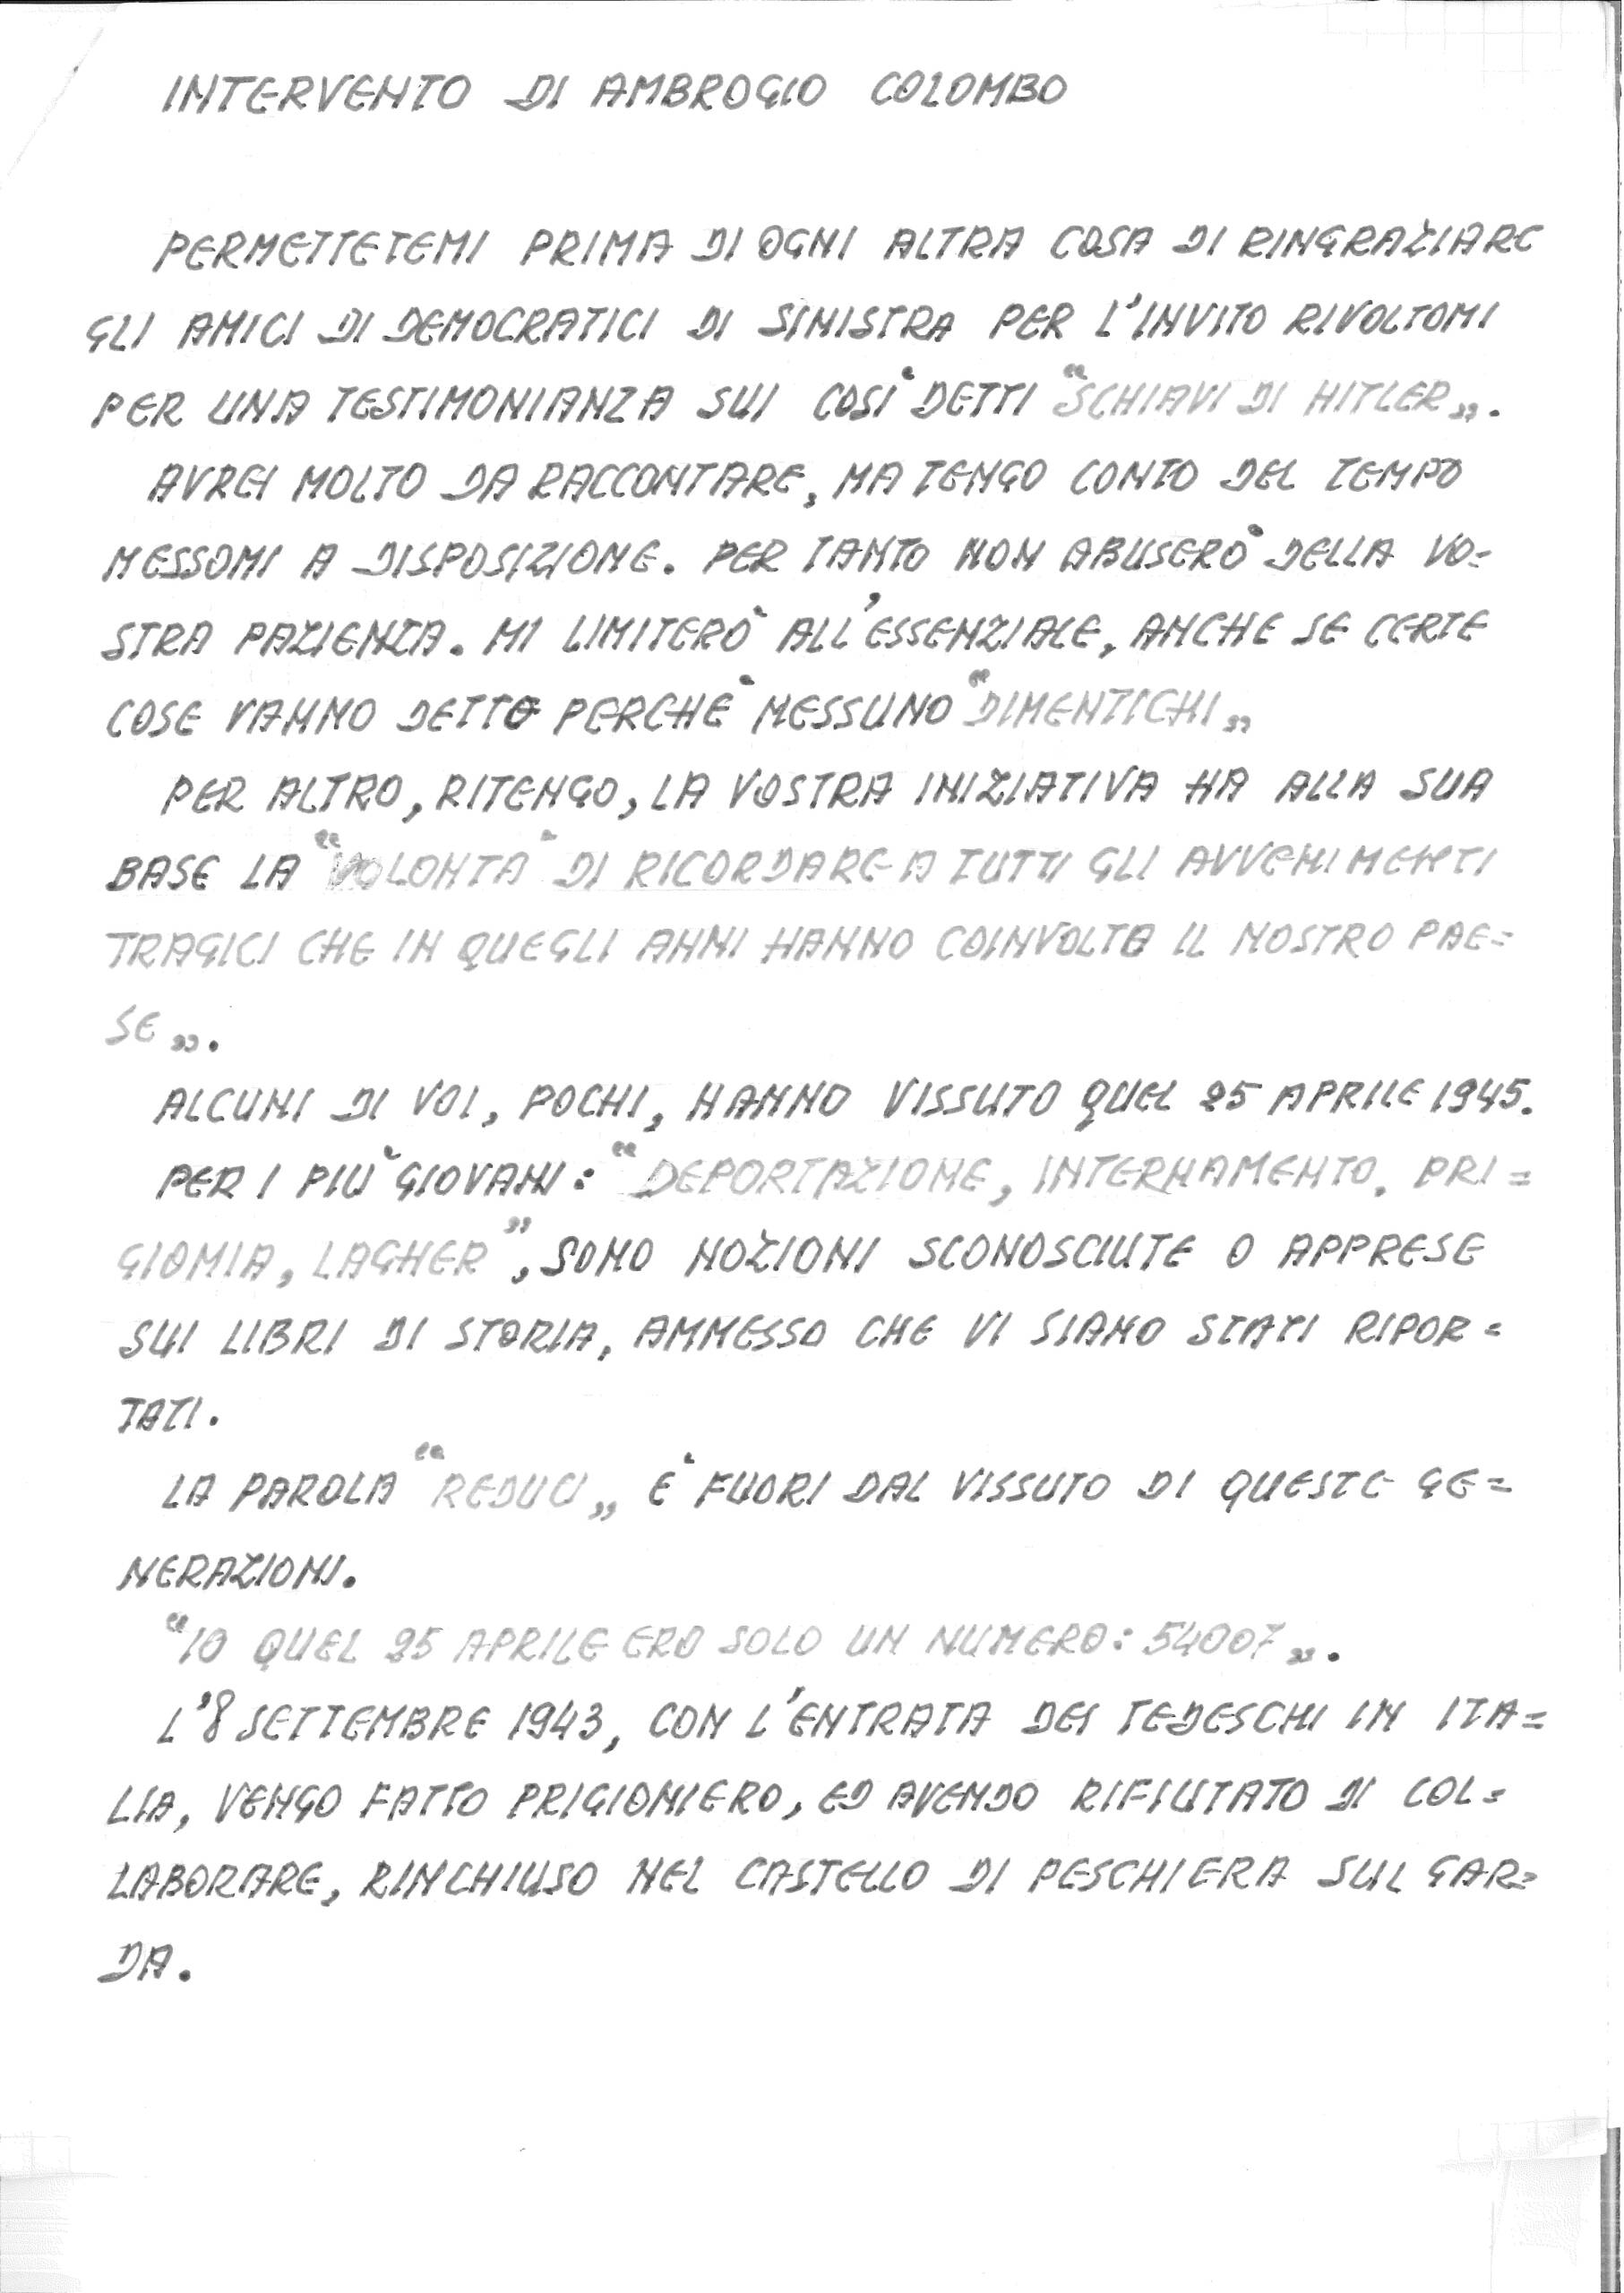 INTERVENTO DI AMBROGIO COLOMBO
PERMETTETEMI PRIMA DI OGNI ALTRA COSA DI RINGRAZIARE
GLI AMICI DI DEMOCRATICI DI SINISTRA PER L'INVITO RIVOLTOMI
PER UNA TESTIMONIANZA SUI COSÌ DETTI “SCHIAVI DI HITLER„.
AVREI MOLTO DA RACCONTARE, MA TENGO CONTO DEL TEMPO
MESSOMI A DISPOSIZIONE. PER TANTO NON ABUSERÒ DELLA VO=
STRA PAZIENZA. MI LIMITERÒ ALL'ESSENZIALE, ANCHE SE CERTE
COSE VANNO DETTO PERCHÈ NESSUNO “DIMENTICHI„
PER ALTRO, RITENGO, LA VOSTRA INIZIATIVA HA ALLA SUA
BASE LA “VOLONTÀ DI RICORDARE A TUTTI GLI AVVENIMENTI
TRAGICI CHE IN QUEGLI ANNI HANNO COINVOLTO IL NOSTRO PAE=
SE„.
ALCUNI DI VOI, POCHI, HANNO VISSUTO QUEL 25 APRILE 1945.
PER I PIÙ GIOVANI: “DEPORTAZIONE, INTERNAMENTO, PRI=
GIONIA, LAGHER”, SONO NOZIONI SCONOSCIUTE O APPRESE
SUI LIBRI DI STORIA, AMMESSO CHE VI SIANO STATI RIPOR=
TATI.
LA PAROLA “REDUCI„ È FUORI DAL VISSUTO DI QUESTE GE=
NERAZIONI.
“IO QUEL 25 APRILE ERO SOLO UN NUMERO: 54007„.
L'8 SETTEMBRE 1943, CON L'ENTRATA DEI TEDESCHI IN ITA=
LIA, VENGO FATTO PRIGIONIERO, ED AVENDO RIFIUTATO DI COL=
LABORARE, RINCHIUSO NEL CASTELLO DI PESCHIERA SUL GAR=
DA.